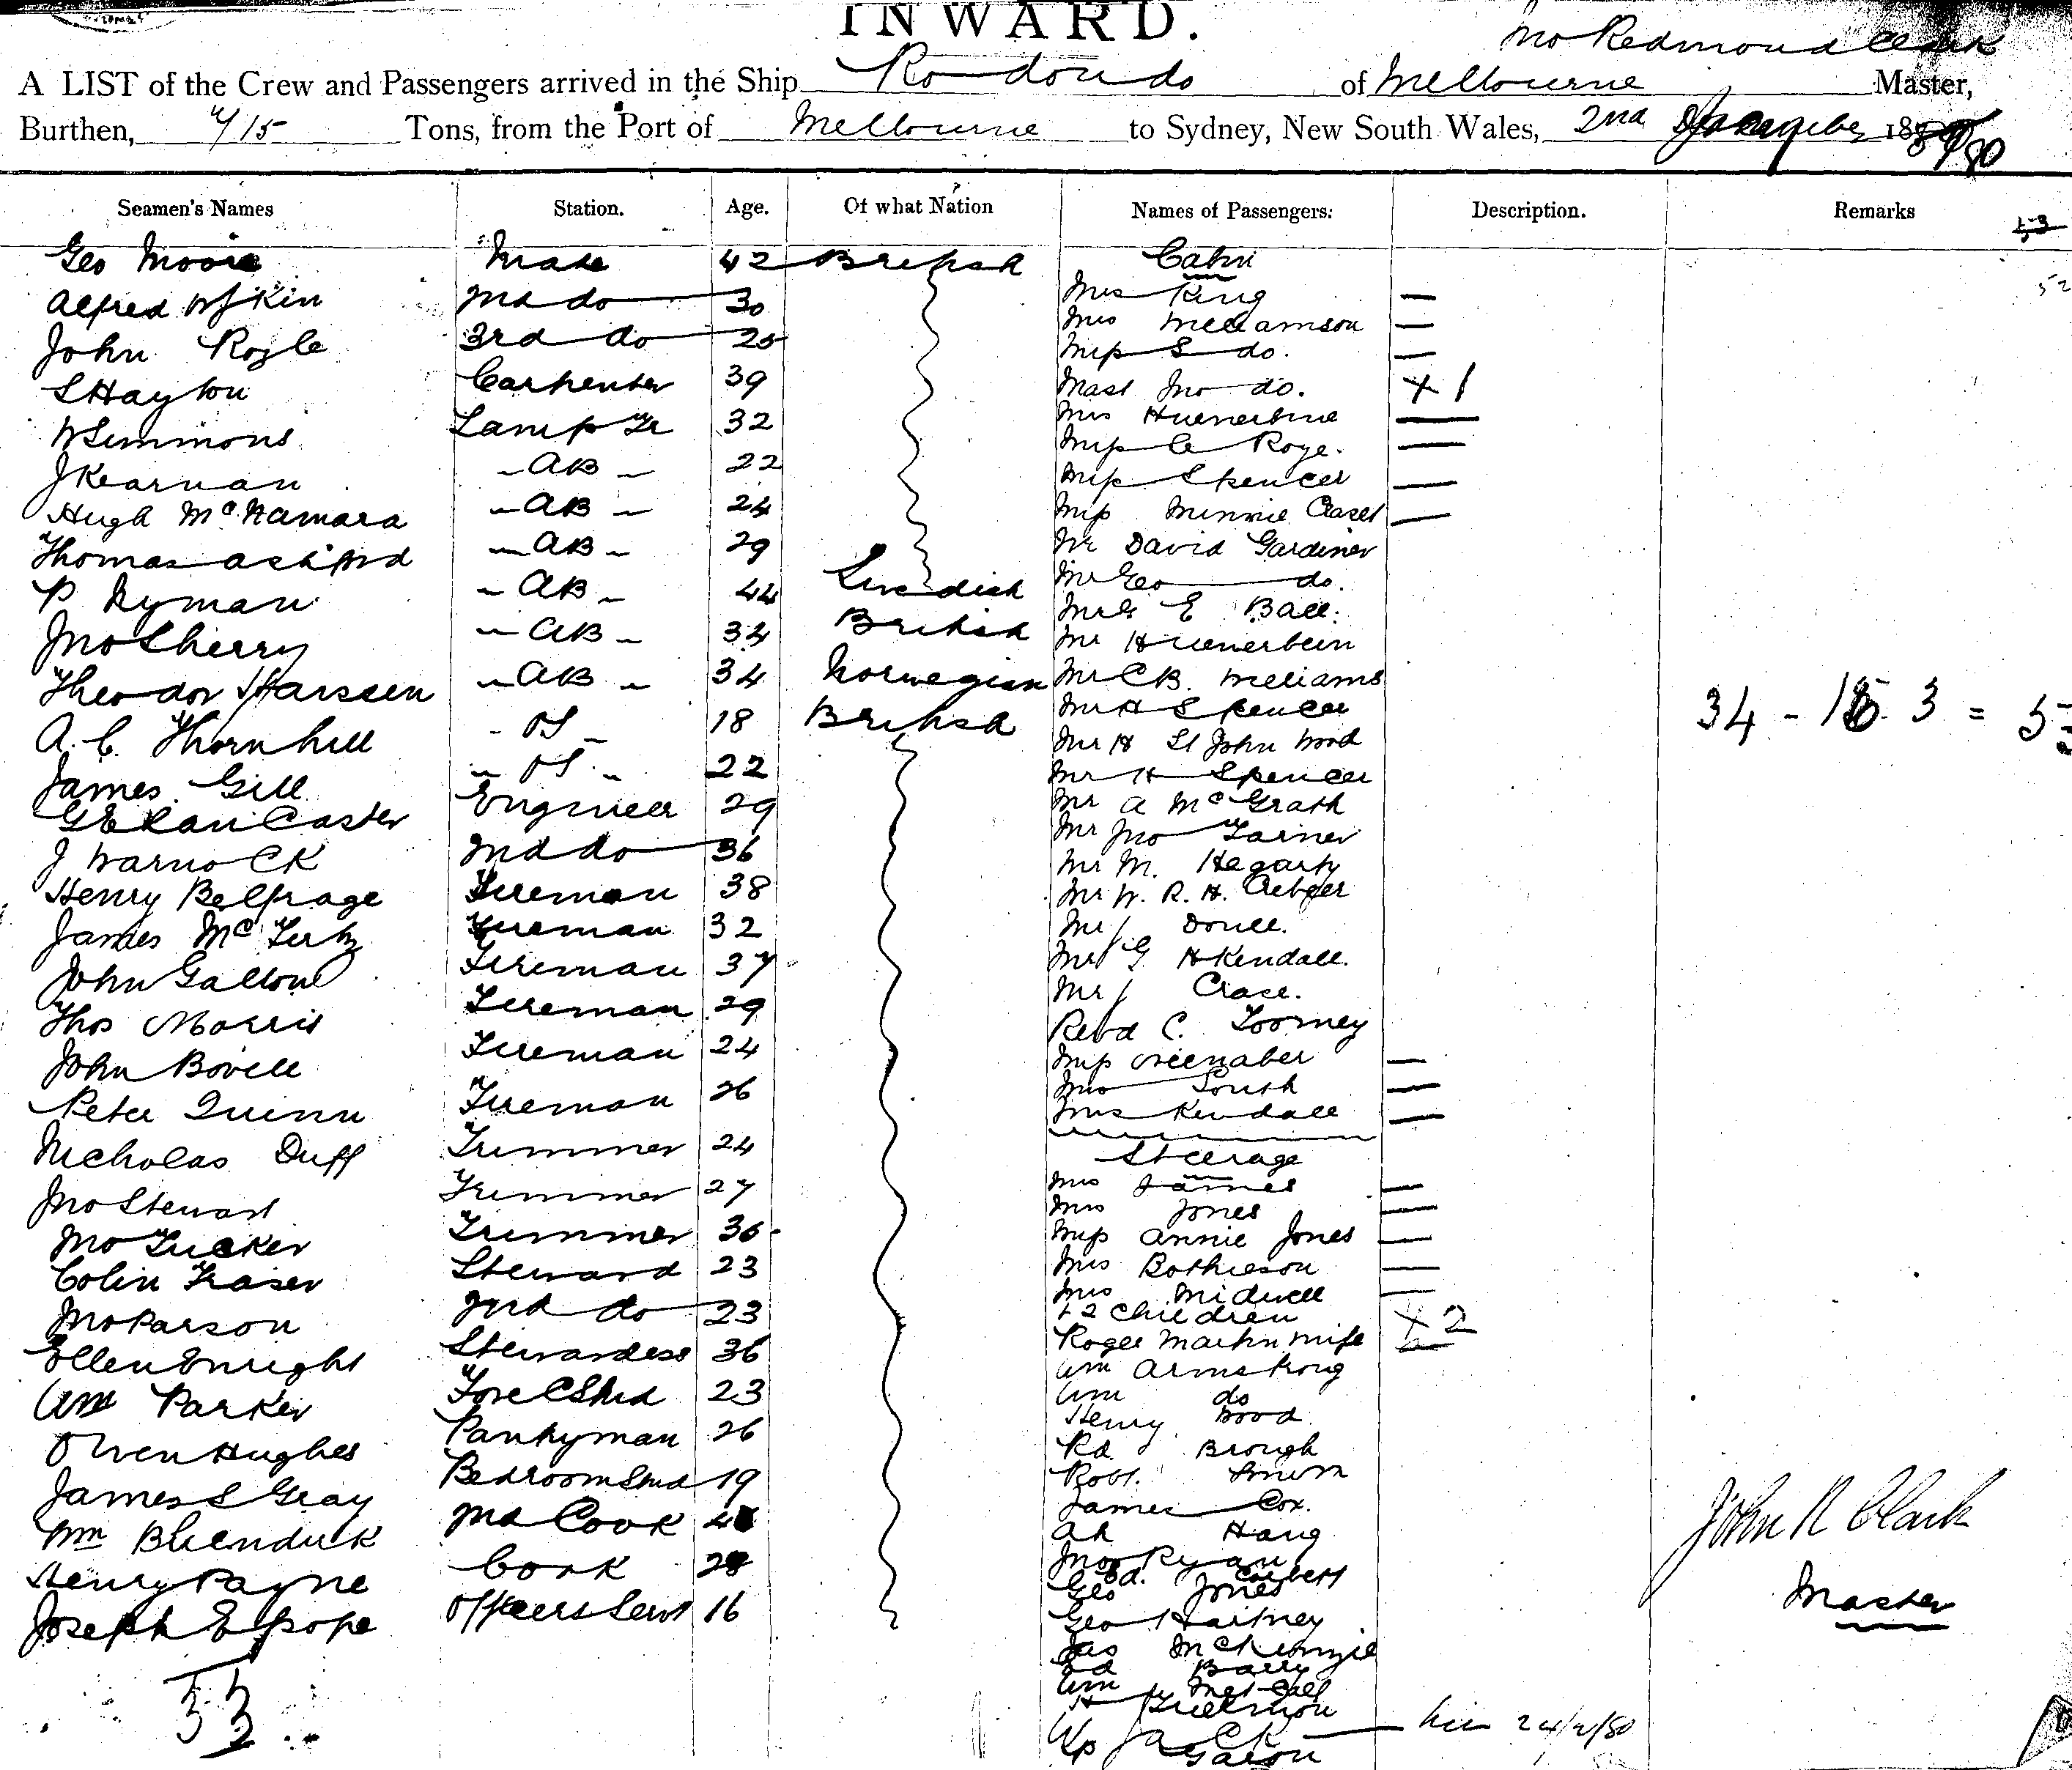 INWARD.
Jno Redmond Clark
A LIST of the Crew and Passengers arrived in the Ship Rodondo of Melbourne Master,
Burthen, 715 Tons, from the Port of Melbourne to Sydney, New South Wales, 2nd January 1880
Seamen's Names Station. Age. Of what Nation Names of Passengers: Description. Remarks
Geo Moore Mate 42 British
Alfred 2nd do 30
John Royle 3rd do 25
S Hayton Carpenter 39
W Simmons Lamp Tr 32
J Kearnan AB 22
Hugh McNamara AB 24
Thomas Ashford AB 29
P Nyman AB 44 Swedish
Jno Sherry AB 34 British
Theodor Harssen AB 34 Norwegian
A. C. Thornhill OS 18 British
James Gill OS 22
G E Lancaster Engineer 29
J Warnock 2nd do 36
Henry Belfrage Fireman 38
James McFertz Fireman 32
John Gallon Fireman 37
Thos Morris Fireman 29
John Bovell Fireman 24
Peter Quinn Fireman 26
Nicholas Duff Trimmer 24
Jno Stewart Trimmer 27
Jno Tucker Trimmer 36
Colin Fraser Steward 23
Jno Parson 2nd do 23
Ellen Enright Stewardess 36
Wm Parker Fore C Stwd 23
Owen Hughes Pantryman 26
James S Gray Bedroom Stwd 19
Wm 2nd Cook
Henry Payne Cook 28
Joseph E Pope Officers Servt 16
Cabin
Mrs King
Mrs Williamson
Miss S do.
Mast Jno do. + 1
Mrs Huenerbine
Miss C Roye.
Miss Spencer
Miss Minnie
Mr David Gardiner
Mr Geo do.
Mr E Ball.
Mr Huenerbein
Mr C B. Williams
Mr H Spencer
Mr H St John Wood
Mr H Spencer
Mr A McGrath
Mr Jno Farner
Mr M. Hegarty
Mr W. R. H.
Mr J Doull.
Mr G H Kendall.
Mr J Crase.
Revd C. Toomey
Miss
Mrs South
Mrs Kendall
Steerage
Mrs James
Mrs Jones
Miss Annie Jones
Mrs Bothieson
Mrs Midwell
+ 2 children + 2
Roger Martin wife
Wm Armstrong
Wm do
Henry Wood
Rd Brough
Robt. Brown
James Cox.
Ah Hang
Jno Ryan
Ed. Corbett
Geo Jones
Geo Hartney
Jas McKenzie
Ed Barry
Wm Metcalf
H
Jack 24/2/80
34 - 15 3 =
John R Clark
Master